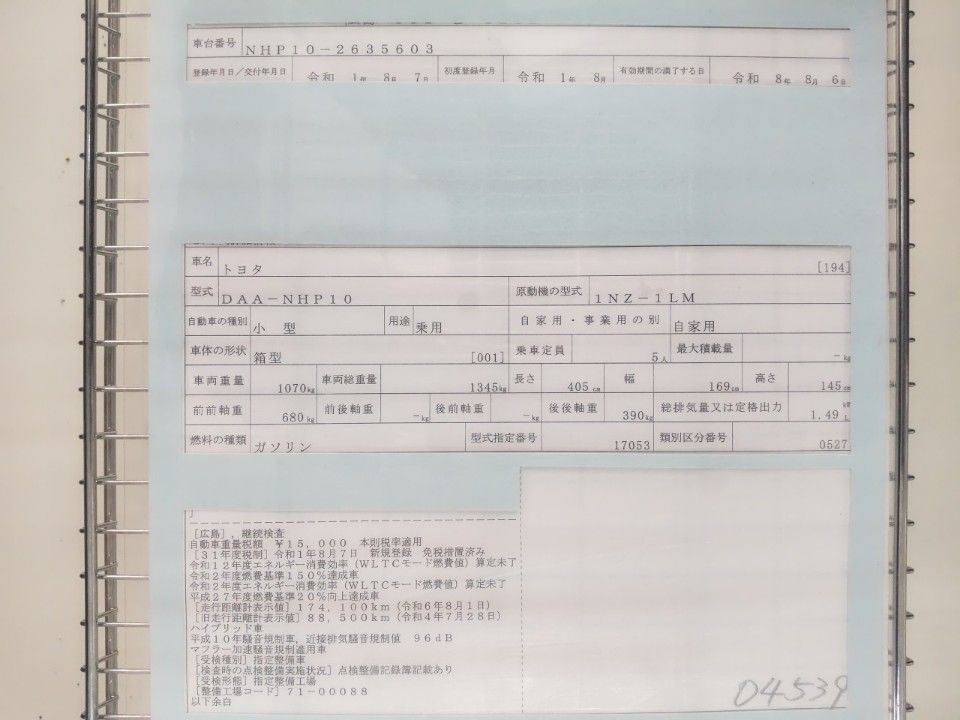 車台番号 NHP10-2635603
登録年月日/交付年月日 令和 1年 8月 7日 初度登録年月 令和 1年 8月 有効期間の満了する日 令和 8年 8月 6日
車名 トヨタ [194]
型式 DAA-NHP10 原動機の型式 1NZ-1LM
自動車の種別 小 型 用途 乗用 自家用・事業用の別 自家用
車体の形状 箱型 [001] 乗車定員 5人 最大積載量 -kg
車両重量 1070kg 車両総重量 1345kg 長さ 405cm 幅 169cm 高さ 145cm
前前軸重 680kg 前後軸重 -kg 後前軸重 -kg 後後軸重 390kg 総排気量又は定格出力 1.49 kW L
燃料の種類 ガソリン 型式指定番号 17053 類別区分番号 0527
[広島],継続検査
自動車重量税額 ¥15,000 本則税率適用
[31年度税制]令和1年8月7日 新規登録 免税措置済み
令和12年度エネルギー消費効率(WLTCモード燃費値)算定未了
令和2年度燃費基準150%達成車
令和2年度エネルギー消費効率(WLTCモード燃費値)算定未了
平成27年度燃費基準20%向上達成車
[走行距離計表示値]174,100km(令和6年8月1日)
[旧走行距離計表示値]88,500km(令和4年7月28日)
ハイブリッド車
平成10年騒音規制車,近接排気騒音規制値 96dB
マフラー加速騒音規制適用車
[受検種別]指定整備車
[検査時の点検整備実施状況]点検整備記録簿記載あり
[受検形態]指定整備工場
[整備工場コード]71-00088
以下余白
04539